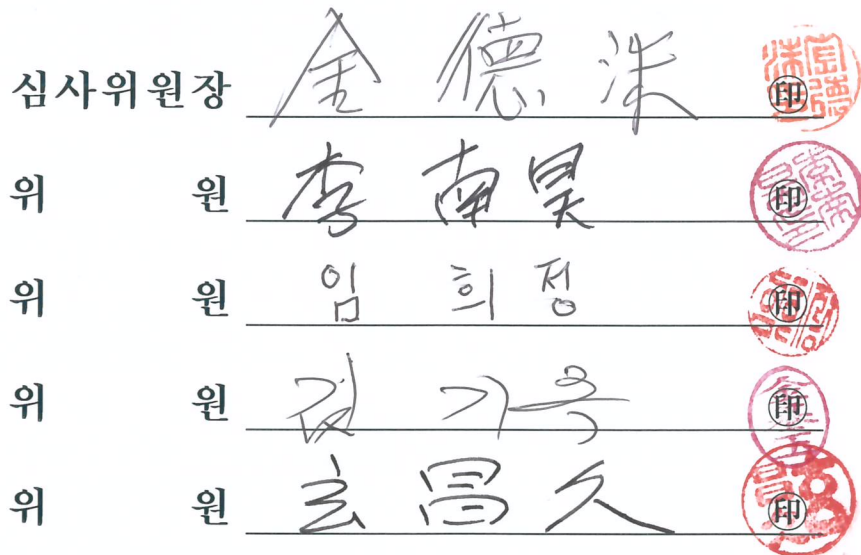 심사위원장 金德洙 印
위 원 李南昊 印
위 원 임희정 印
위 원 김기욱 印
위 원 玄昌久 印